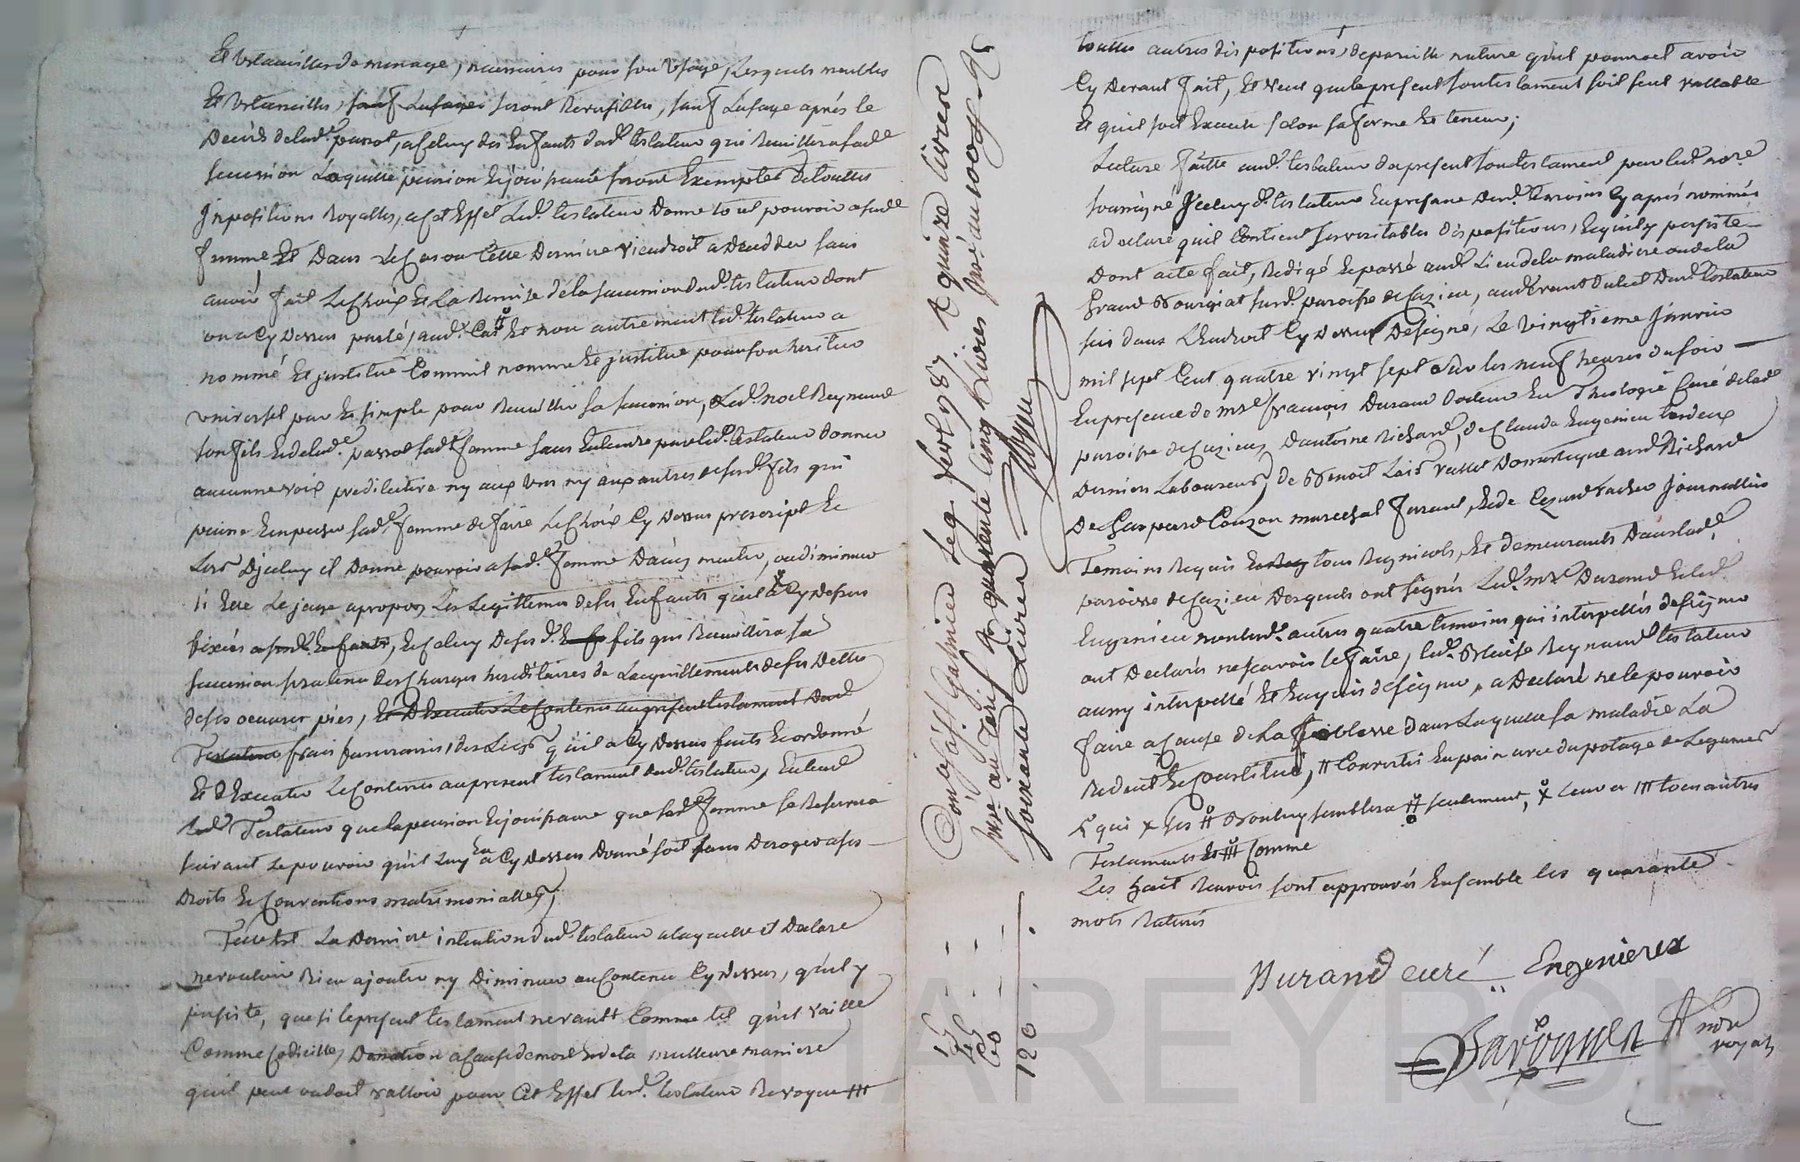 Et Ustancilles de menage, necessaires pour son Usage, Lesquels meubles
Et Ustancilles, sauf Lusage seront Recueillis, sauf Lusage aprés le
Decés delad.e parrot, a celuy des Enfants dud. testateur qui Recuillira sad.e
succession Laquelle pension Et jouissance seront Exemptes de touttes
Impositions Royalles, a cet Effet Led. testateur Donne tout pouvoir asad.e
femme Et Dans Le Cas ou Cette Derniere viendroit a Deceder sans
avoir fait Le Choix Et La Remise de la succession dud. testateur dont
on a Cy Dessus parlé, aud. Cas Et non autrement led. testateur a
nommé Et justitué Comme il nomme Et justitue pour son heritier
universel pur Et simple pour Recuillir sa succession, Led. noel Reynaud
son fils Et delad.e parrot sad.e femme sans Entendre par led. testateur donner
aucunne voix predilective ny aux Uns ny aux autres de sesd. fils qui
puisse Empecher sad.e femme de faire Le Choix Cy Dessus prescript Et
Lors Djceluy il Donne pouvoir a sad.e femme Daugmenter, ou diminuer
si Elle Le juge apropos Les Legittimes de ses Enfants quil a Cy Dessus
fixées a sesd. Enfants, Et Celuy de ses d. fils qui Recuillira sa
succession sera tenu des Charges hereditaires de Lacquittement de ses Dettes
de ses oeuvres pies, Et D'Executer Le Contenu au present testament dud.
Testateur frais funeraires, des Legs quil a Cy Dessus faits Et ordonné
Et D'Executer Le Contenu au present testament dud. testateur, Entend
Led. Testateur que la pension Et jouissance que sad.e femme se Reservera
suivant Le pouvoir quil Luy En a Cy Dessus Donné soit sans Deroger a ses
Droits Et Conventions matrimonialles;
Telle Est La Derniere intention dud. testateur a laquelle il Declare
ne vouloir Rien ajouter ny Diminuer au Contenu Cy Dessus, quil y
persiste, que si le present testament ne vaut Comme tel quil vaille
Comme Codicille, Donation a Cause de mort Et de la meilleure maniere
quil peut ou doit valloir pour Cet Effet led. testateur Revoque ##
Con.lé à S.t Galmier Le 9 fev. 1787. R quinze livres
insé au Tarif. R quarente cinq livres insé au 100e d.
soixante Livres
15
45
60
120
touttes autres dispositions depareille nature quil pourroit avoir
Cy Devant fait, Et Veut que le present son testament soit seul vallable
Et quil soit Execute selon sa forme Et teneur;
Lecture faitte aud. testateur du present son testament par led. no.re
soussigné Jceluy d. testateur En presance desd. temoins Cy aprés nommés
a declaré quil Contient ses veritables dispositions, Et quil y persiste
Dont acte fait, Redigé Et passé aud. Lieu de la maladiere ou de la
Grand Bourgiat susd. paroisse de Cuzieu, au devant du lict Dud. testateur
sis dans Lendroit Cy Dessus Designé, Le vingtieme Janvier
mil sept Cent quatre vingt sept Sur les neuf heures du soir
En presence de m.re françois Durand docteur En Theologie Curé delad.e
paroisse de Cuzieu, Dantoine Richard, de Claude Eugenieu tous deux
Derniers Laboureurs, de Benoit Lair vallet Domestique aud. Richard
De Gaspard Couzon marechal ferrant, Et de Cezard vacher Journallier
Temoins Requis tous Regnicols, Et demeurants Dans lad.e
paroisse de Cuzieu Desquels ont signés Led. m.re Durand Et led.
Eugenieu non lesd. autres quatre temoins qui interpellés de signer
ont Declarés ne scavoir le faire, led. Blaise Reynaud testateur
aussy interpellé Et Enquis de signer, a Declaré ne le pouvoir
faire a Cause de La foiblesse Dans Laquelle sa maladie La
Reduit Et Constitué, # Convertis En pain avec du potage de Legumes
qui x ses # Bon luy semblera # seulement, x Ceux ### tous autres
Testaments Et ### Comme
Les huit Renvois sont approuvés Ensemble les quarante
mots Raturés
Durand curé Engenieux
Barbquet no.re royal
CHAREYRON